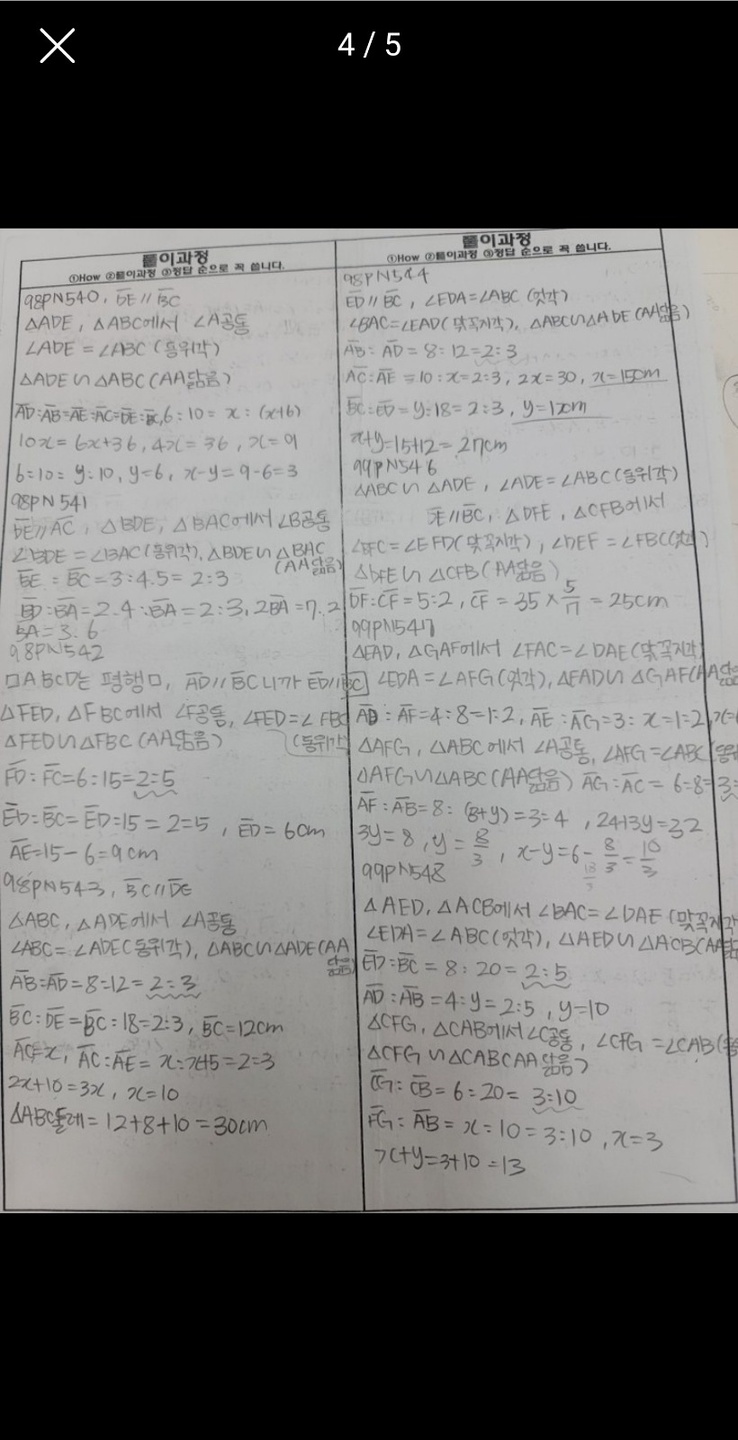 4 / 5
풀이과정
①How ②풀이과정 ③정답 순으로 꼭 씁니다.
98PN540, DE // BC
△ADE, △ABC에서 ∠A공통
∠ADE = ∠ABC (동위각)
△ADE ∽ △ABC (AA닮음)
AD:AB=AE:AC=DE:BC, 6:10 = x:(x+6)
10x = 6x+36, 4x = 36, x = 9
6:10 = y:10, y=6, x-y = 9-6=3
98PN 541
DE // AC, △BDE, △BAC에서 ∠B공통
∠BDE = ∠BAC (동위각), △BDE ∽ △BAC
(AA닮음)
BE : BC = 3:4.5 = 2:3
BD:BA = 2.4:BA = 2:3, 2BA = 7.2
BA = 3.6
98PN542
□ABCD는 평행□, AD // BC니까 ED // BC
△FED, △FBC에서 ∠F공통, ∠FED = ∠FBC
△FED ∽ △FBC (AA닮음) (동위각
FD : FC = 6:15 = 2:5
ED:BC = ED:15 = 2:5, ED = 6cm
AE=15-6=9cm
98PN543, BC // DE
△ABC, △ADE에서 ∠A공통
∠ABC = ∠ADE (동위각), △ABC ∽ △ADE (AA
닮음)
AB:AD = 8:12 = 2:3
BC:DE = BC:18 = 2:3, BC = 12cm
AC=x, AC:AE = x:x+5 = 2:3
2x+10 = 3x, x=10
△ABC둘레 = 12+8+10 = 30cm
풀이과정
①How ②풀이과정 ③정답 순으로 꼭 씁니다.
98PN544
ED // BC, ∠EDA = ∠ABC (엇각)
∠BAC = ∠EAD (맞꼭지각), △ABC ∽ △ADE (AA닮음)
AB : AD = 8:12 = 2:3
AC:AE = 10:x = 2:3, 2x = 30, x = 15cm
BC:ED = y:18 = 2:3, y=12cm
x+y=15+12=27cm
99PN546
△ABC ∽ △ADE, ∠ADE = ∠ABC (동위각)
// BC, △DFE, △CFB에서
= ∠EFD (맞꼭지각), ∠DEF = ∠FBC (엇각)
△DFE ∽ △CFB (AA닮음)
DF:CF = 5:2, CF = 35 × = 25cm
99PN547
△EAD, △GAF에서 ∠FAC = ∠DAE (맞꼭지각)
∠EDA = ∠AFG (엇각), △EAD ∽ △GAF (AA닮음
AD : AF = 4:8 = 1:2, AE : AG = 3:x = 1:2,
△AFG, △ABC에서 ∠A공통, ∠AFG = ∠ABC (동위
△AFG ∽ △ABC (AA닮음) AG : AC = 6:8 = 3:
AF : AB = 8:(8+y) = 3:4, 24+3y = 32
3y = 8, y = 8/3, x-y = 6 - 8/3 = 10/3
99PN548
△AED, △ACB에서 ∠BAC = ∠DAE (맞꼭지각
∠EDA = ∠ABC (엇각), △AED ∽ △ACB (AA닮
ED:BC = 8:20 = 2:5
AD : AB = 4:y = 2:5, y=10
△CFG, △CAB에서 ∠C공통, ∠CFG = ∠CAB (동
△CFG ∽ △CAB (AA닮음)
CG : CB = 6:20 = 3:10
FG : AB = x:10 = 3:10, x=3
x+y=3+10=13